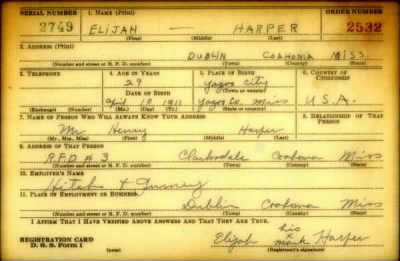 SERIAL NUMBER 1. NAME (Print) ORDER NUMBER
2749 ELIJAH — HARPER 2532
(First) (Middle) (Last)
2. ADDRESS (Print)
DUBLIN COAHOMA MISS
(Number and street or R. F. D. number) (Town) (County) (State)
3. TELEPHONE 4. AGE IN YEARS 5. PLACE OF BIRTH 6. COUNTRY OF CITIZENSHIP
29 Yazoo City
DATE OF BIRTH (Town or county)
April 10 1911 Yazoo Co. Miss U.S.A.
(Exchange) (Number) (Mo.) (Day) (Yr.) (State or country)
7. NAME OF PERSON WHO WILL ALWAYS KNOW YOUR ADDRESS 8. RELATIONSHIP OF THAT PERSON
Mr Henry Harper
(Mr., Mrs., Miss) (First) (Middle) (Last)
9. ADDRESS OF THAT PERSON
R.F.D # 3 Clarksdale Coahoma Miss
(Number and street or R. F. D. number) (Town) (County) (State)
10. EMPLOYER'S NAME
11. PLACE OF EMPLOYMENT OR BUSINESS
Dublin Coahoma Miss
(Number and street or R. F. D. number) (Town) (County) (State)
I AFFIRM THAT I HAVE VERIFIED ABOVE ANSWERS AND THAT THEY ARE TRUE.
REGISTRATION CARD Elijah his x mark Harper
D. S. S. Form 1 (over) (Registrant's signature)